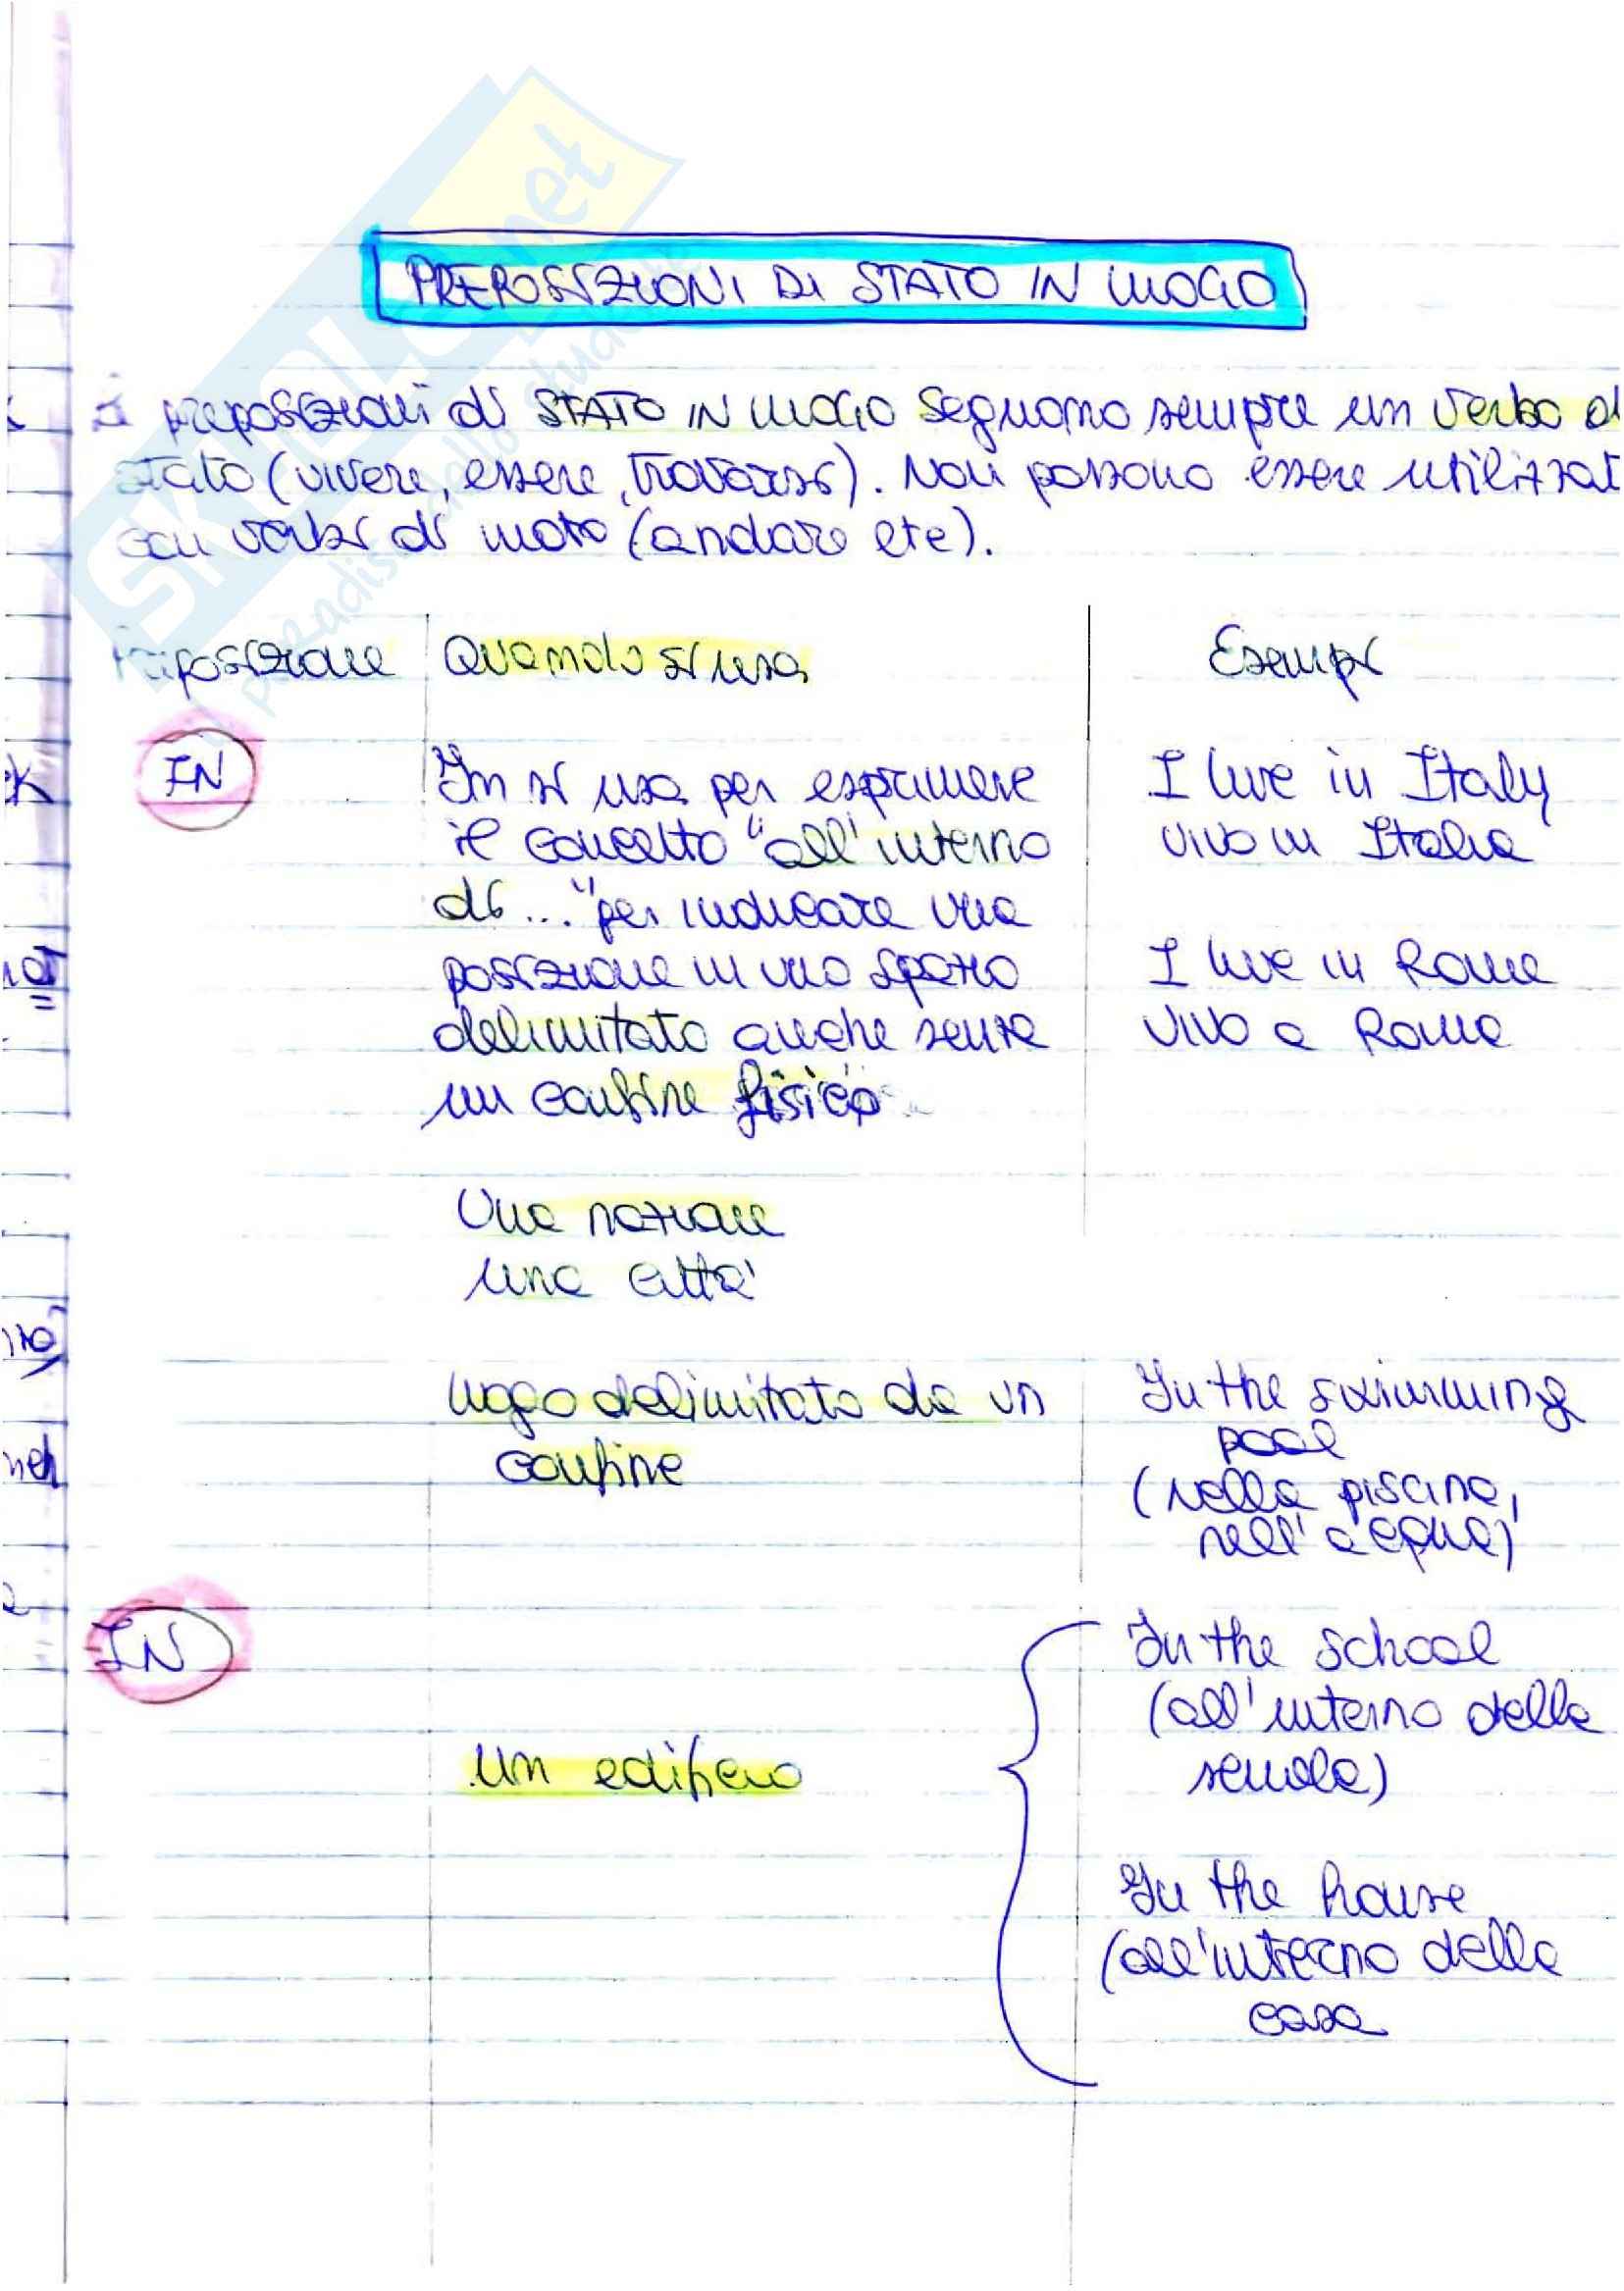 PREPOSIZIONI DI STATO IN LUOGO
preposizioni di STATO IN LUOGO seguono sempre un verbo di
stato (vivere, essere, trovarsi). Non possono essere utilizzat
con verbi di moto (andare etc).
Preposizione Quando si usa Esempi
IN In si usa per esprimere I live in Italy
il concetto "all'interno vivo in Italia
di..." per indicare una
posizione in uno spazio I live in Rome
delimitato anche senza vivo a Roma
un confine fisico
Una nazione
una città
luogo delimitato da un In the swimming
confine pool
(nella piscina,
nell'acqua)
IN In the school
(all'interno della
un edificio scuola)
In the house
(all'interno della
casa
SKUOLA.net